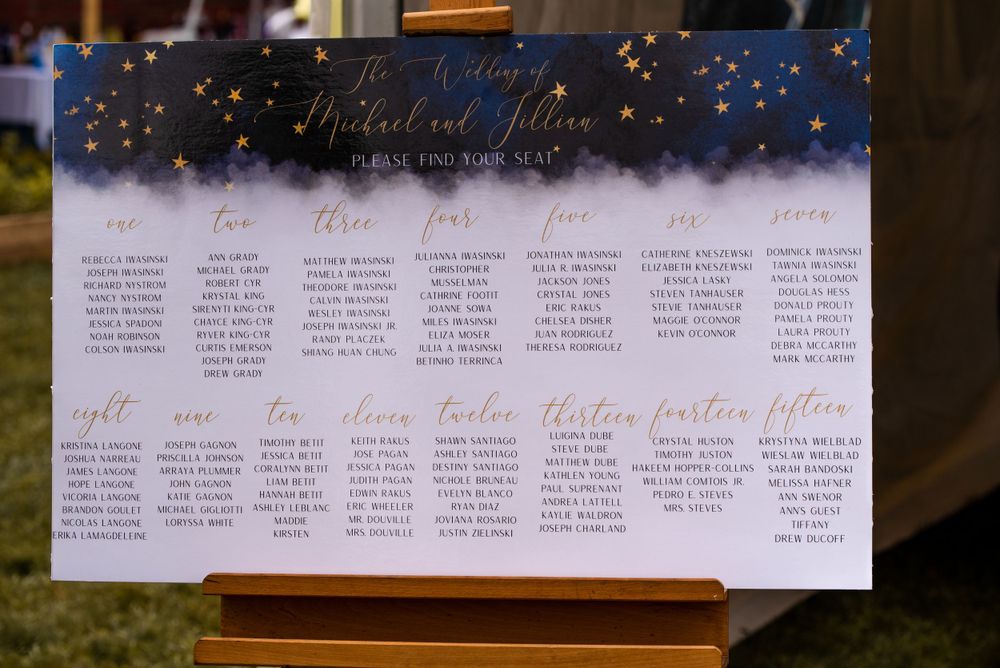 The Wedding of
Michael and Jillian
PLEASE FIND YOUR SEAT
one
REBECCA IWASINSKI
JOSEPH IWASINSKI
RICHARD NYSTROM
NANCY NYSTROM
MARTIN IWASINSKI
JESSICA SPADONI
NOAH ROBINSON
COLSON IWASINSKI
two
ANN GRADY
MICHAEL GRADY
ROBERT CYR
KRYSTAL KING
SIRENYTI KING-CYR
CHAYCE KING-CYR
RYVER KING-CYR
CURTIS EMERSON
JOSEPH GRADY
DREW GRADY
three
MATTHEW IWASINSKI
PAMELA IWASINSKI
THEODORE IWASINSKI
CALVIN IWASINSKI
WESLEY IWASINSKI
JOSEPH IWASINSKI JR.
RANDY PLACZEK
SHIANG HUAN CHUNG
four
JULIANNA IWASINSKI
CHRISTOPHER
MUSSELMAN
CATHRINE FOOTIT
JOANNE SOWA
MILES IWASINSKI
ELIZA MOSER
JULIA A. IWASINSKI
BETINHO TERRINCA
five
JONATHAN IWASINSKI
JULIA R. IWASINSKI
JACKSON JONES
CRYSTAL JONES
ERIC RAKUS
CHELSEA DISHER
JUAN RODRIGUEZ
THERESA RODRIGUEZ
six
CATHERINE KNESZEWSKI
ELIZABETH KNESZEWSKI
JESSICA LASKY
STEVEN TANHAUSER
STEVIE TANHAUSER
MAGGIE O'CONNOR
KEVIN O'CONNOR
seven
DOMINICK IWASINSKI
TAWNIA IWASINSKI
ANGELA SOLOMON
DOUGLAS HESS
DONALD PROUTY
PAMELA PROUTY
LAURA PROUTY
DEBRA MCCARTHY
MARK MCCARTHY
eight
KRISTINA LANGONE
JOSHUA NARREAU
JAMES LANGONE
HOPE LANGONE
VICORIA LANGONE
BRANDON GOULET
NICOLAS LANGONE
ERIKA LAMAGDELEINE
nine
JOSEPH GAGNON
PRISCILLA JOHNSON
ARRAYA PLUMMER
JOHN GAGNON
KATIE GAGNON
MICHAEL GIGLIOTTI
LORYSSA WHITE
ten
TIMOTHY BETIT
JESSICA BETIT
CORALYNN BETIT
LIAM BETIT
HANNAH BETIT
ASHLEY LEBLANC
MADDIE
KIRSTEN
eleven
KEITH RAKUS
JOSE PAGAN
JESSICA PAGAN
JUDITH PAGAN
EDWIN RAKUS
ERIC WHEELER
MR. DOUVILLE
MRS. DOUVILLE
twelve
SHAWN SANTIAGO
ASHLEY SANTIAGO
DESTINY SANTIAGO
NICHOLE BRUNEAU
EVELYN BLANCO
RYAN DIAZ
JOVIANA ROSARIO
JUSTIN ZIELINSKI
thirteen
LUIGINA DUBE
STEVE DUBE
MATTHEW DUBE
KATHLEN YOUNG
PAUL SUPRENANT
ANDREA LATTELL
KAYLIE WALDRON
JOSEPH CHARLAND
fourteen
CRYSTAL HUSTON
TIMOTHY JUSTON
HAKEEM HOPPER-COLLINS
WILLIAM COMTOIS JR.
PEDRO E. STEVES
MRS. STEVES
fifteen
KRYSTYNA WIELBLAD
WIESLAW WIELBLAD
SARAH BANDOSKI
MELISSA HAFNER
ANN SWENOR
ANN'S GUEST
TIFFANY
DREW DUCOFF